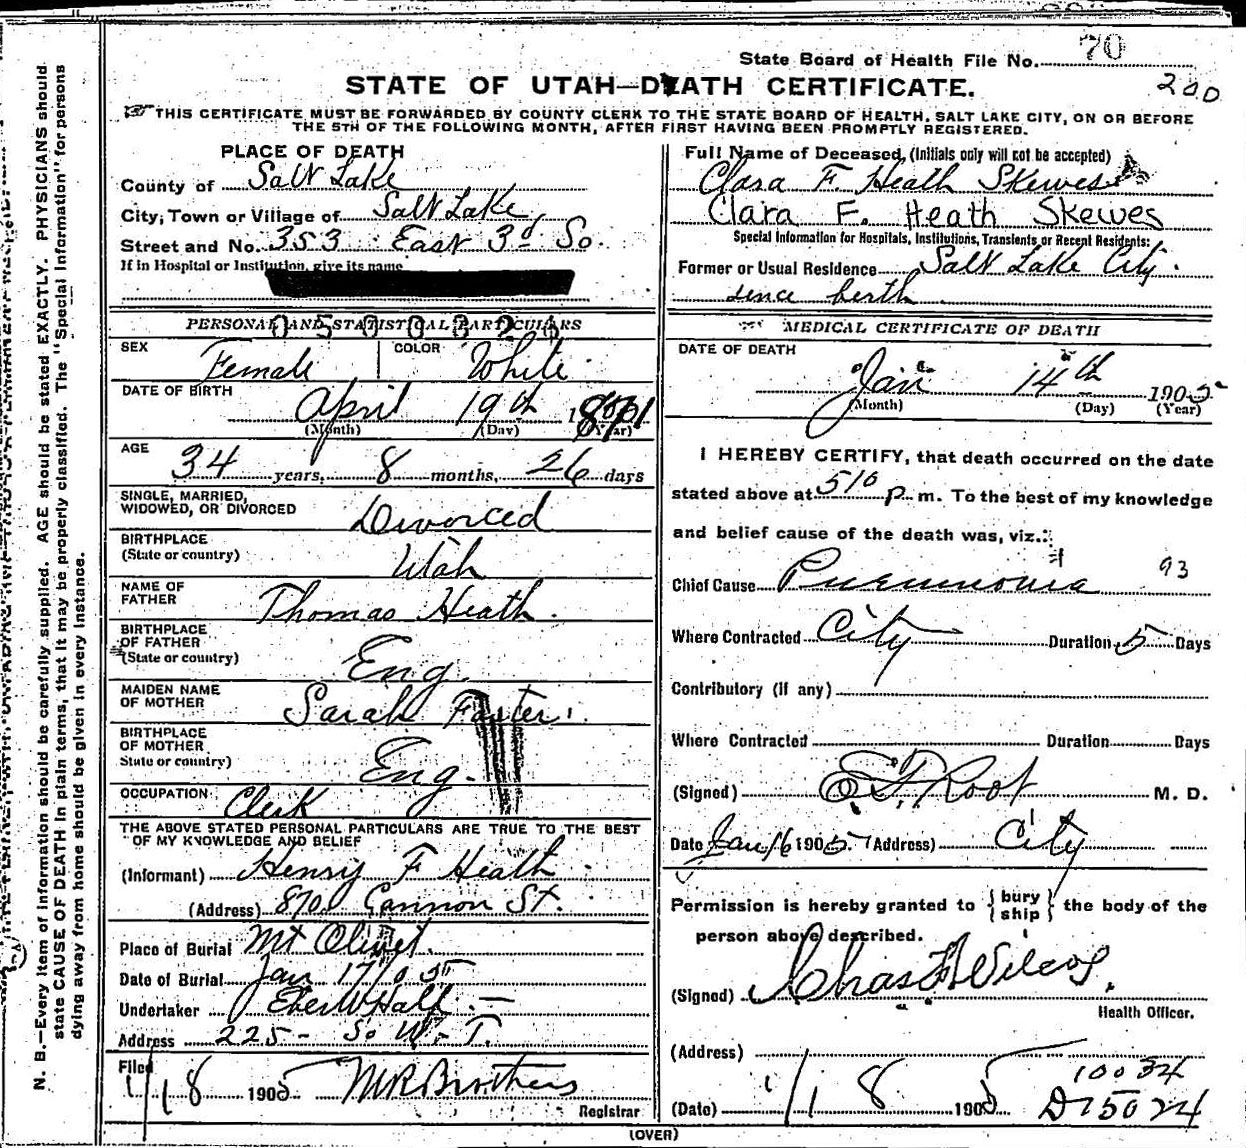 State Board of Health File No. 70
STATE OF UTAH—DEATH CERTIFICATE.
200
THIS CERTIFICATE MUST BE FORWARDED BY COUNTY CLERK TO THE STATE BOARD OF HEALTH, SALT LAKE CITY, ON OR BEFORE
THE 5TH OF THE FOLLOWING MONTH, AFTER FIRST HAVING BEEN PROMPTLY REGISTERED.
N. B.—Every item of information should be carefully supplied. AGE should be stated EXACTLY. PHYSICIANS should
state CAUSE OF DEATH in plain terms, that it may be properly classified. The "Special Information" for persons
dying away from home should be given in every instance.
PLACE OF DEATH
County of Salt Lake
City, Town or Village of Salt Lake
Street and No. 353 East 3d So.
If in Hospital or Institution, give its name
PERSONAL AND STATISTICAL PARTICULARS
SEX Female COLOR White
DATE OF BIRTH April 19th 1871
(Month) (Day) (Year)
AGE 34 years, 8 months, 26 days
SINGLE, MARRIED,
WIDOWED, OR DIVORCED Divorced
BIRTHPLACE
(State or country) Utah
NAME OF
FATHER Thomas Heath.
BIRTHPLACE
OF FATHER
(State or country) Eng.
MAIDEN NAME
OF MOTHER Sarah Foster
BIRTHPLACE
OF MOTHER
State or country) Eng.
OCCUPATION Clerk
THE ABOVE STATED PERSONAL PARTICULARS ARE TRUE TO THE BEST
OF MY KNOWLEDGE AND BELIEF
(Informant) Henry F Heath
(Address) 870 Cannon St.
Place of Burial Mt Olivet.
Date of Burial Jan 17/05
Undertaker Eber W Hall
Address 225 - So W. T.
Filed 1/18 1905 M R Brothers
Registrar
Full Name of Deceased, (Initials only will not be accepted)
Clara F. Heath Skewes
Clara F. Heath Skewes
Special Information for Hospitals, Institutions, Transients or Recent Residents:
Former or Usual Residence Salt Lake City.
since berth
MEDICAL CERTIFICATE OF DEATH
DATE OF DEATH
Jan 14th 1905
(Month) (Day) (Year)
I HEREBY CERTIFY, that death occurred on the date
stated above at 510 p. m. To the best of my knowledge
and belief cause of the death was, viz.:
Chief Cause Pneumonia 93
Where Contracted City Duration 5 Days
Contributory (if any)
Where Contracted Duration Days
(Signed) E. F. Root M. D.
Date Jan 16 1905. (Address) City
Permission is hereby granted to { bury ship } the body of the
person above described.
(Signed) Chas F Wilcox,
Health Officer.
(Address)
10034
(Date) 1/18 1905 D 15024
(OVER)